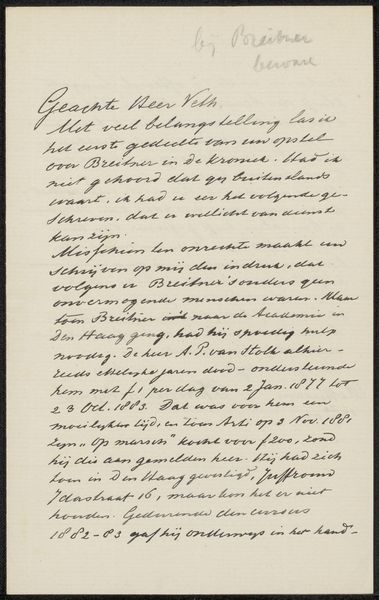 bij Breitner
bewaren
Geachte Heer Veth.
Met veel belangstelling las ik
het eerste gedeelte van uw opstel
over Breitner in de Kroniek. Had ik
niet gehoord dat gij buitenslands
waart, ik had u eer het volgende ge-
schreven, dat u wellicht van dienst
kan zijn.
Misschien ten onrechte maakt uw
schrijven op mij den indruk, dat
volgens u Breitner's ouders geen
onvermogende menschen waren. Maar
toen Breitner naar de Academie in
Den Haag ging, had hij spoedig hulp
noodig. De heer A.P. van Stolk alhier -
reeds ettelijke jaren dood - ondersteunde
hem met f1 per dag van 2 Jan. 1877 tot
23 Oct. 1883. Dat was voor hem een
moeilijke tijd, en toen Arti op 3 Nov. 1881
zijn "Op marsch" kocht voor f200, zond
hij die aan gemelden heer. Hij had zich
toen in Den Haag gevestigd, Juffrouw
Idastraat 16, maar kon het er niet
houden. Gedurende den cursus
1882-83 gaf hij onderwijs in het hand-